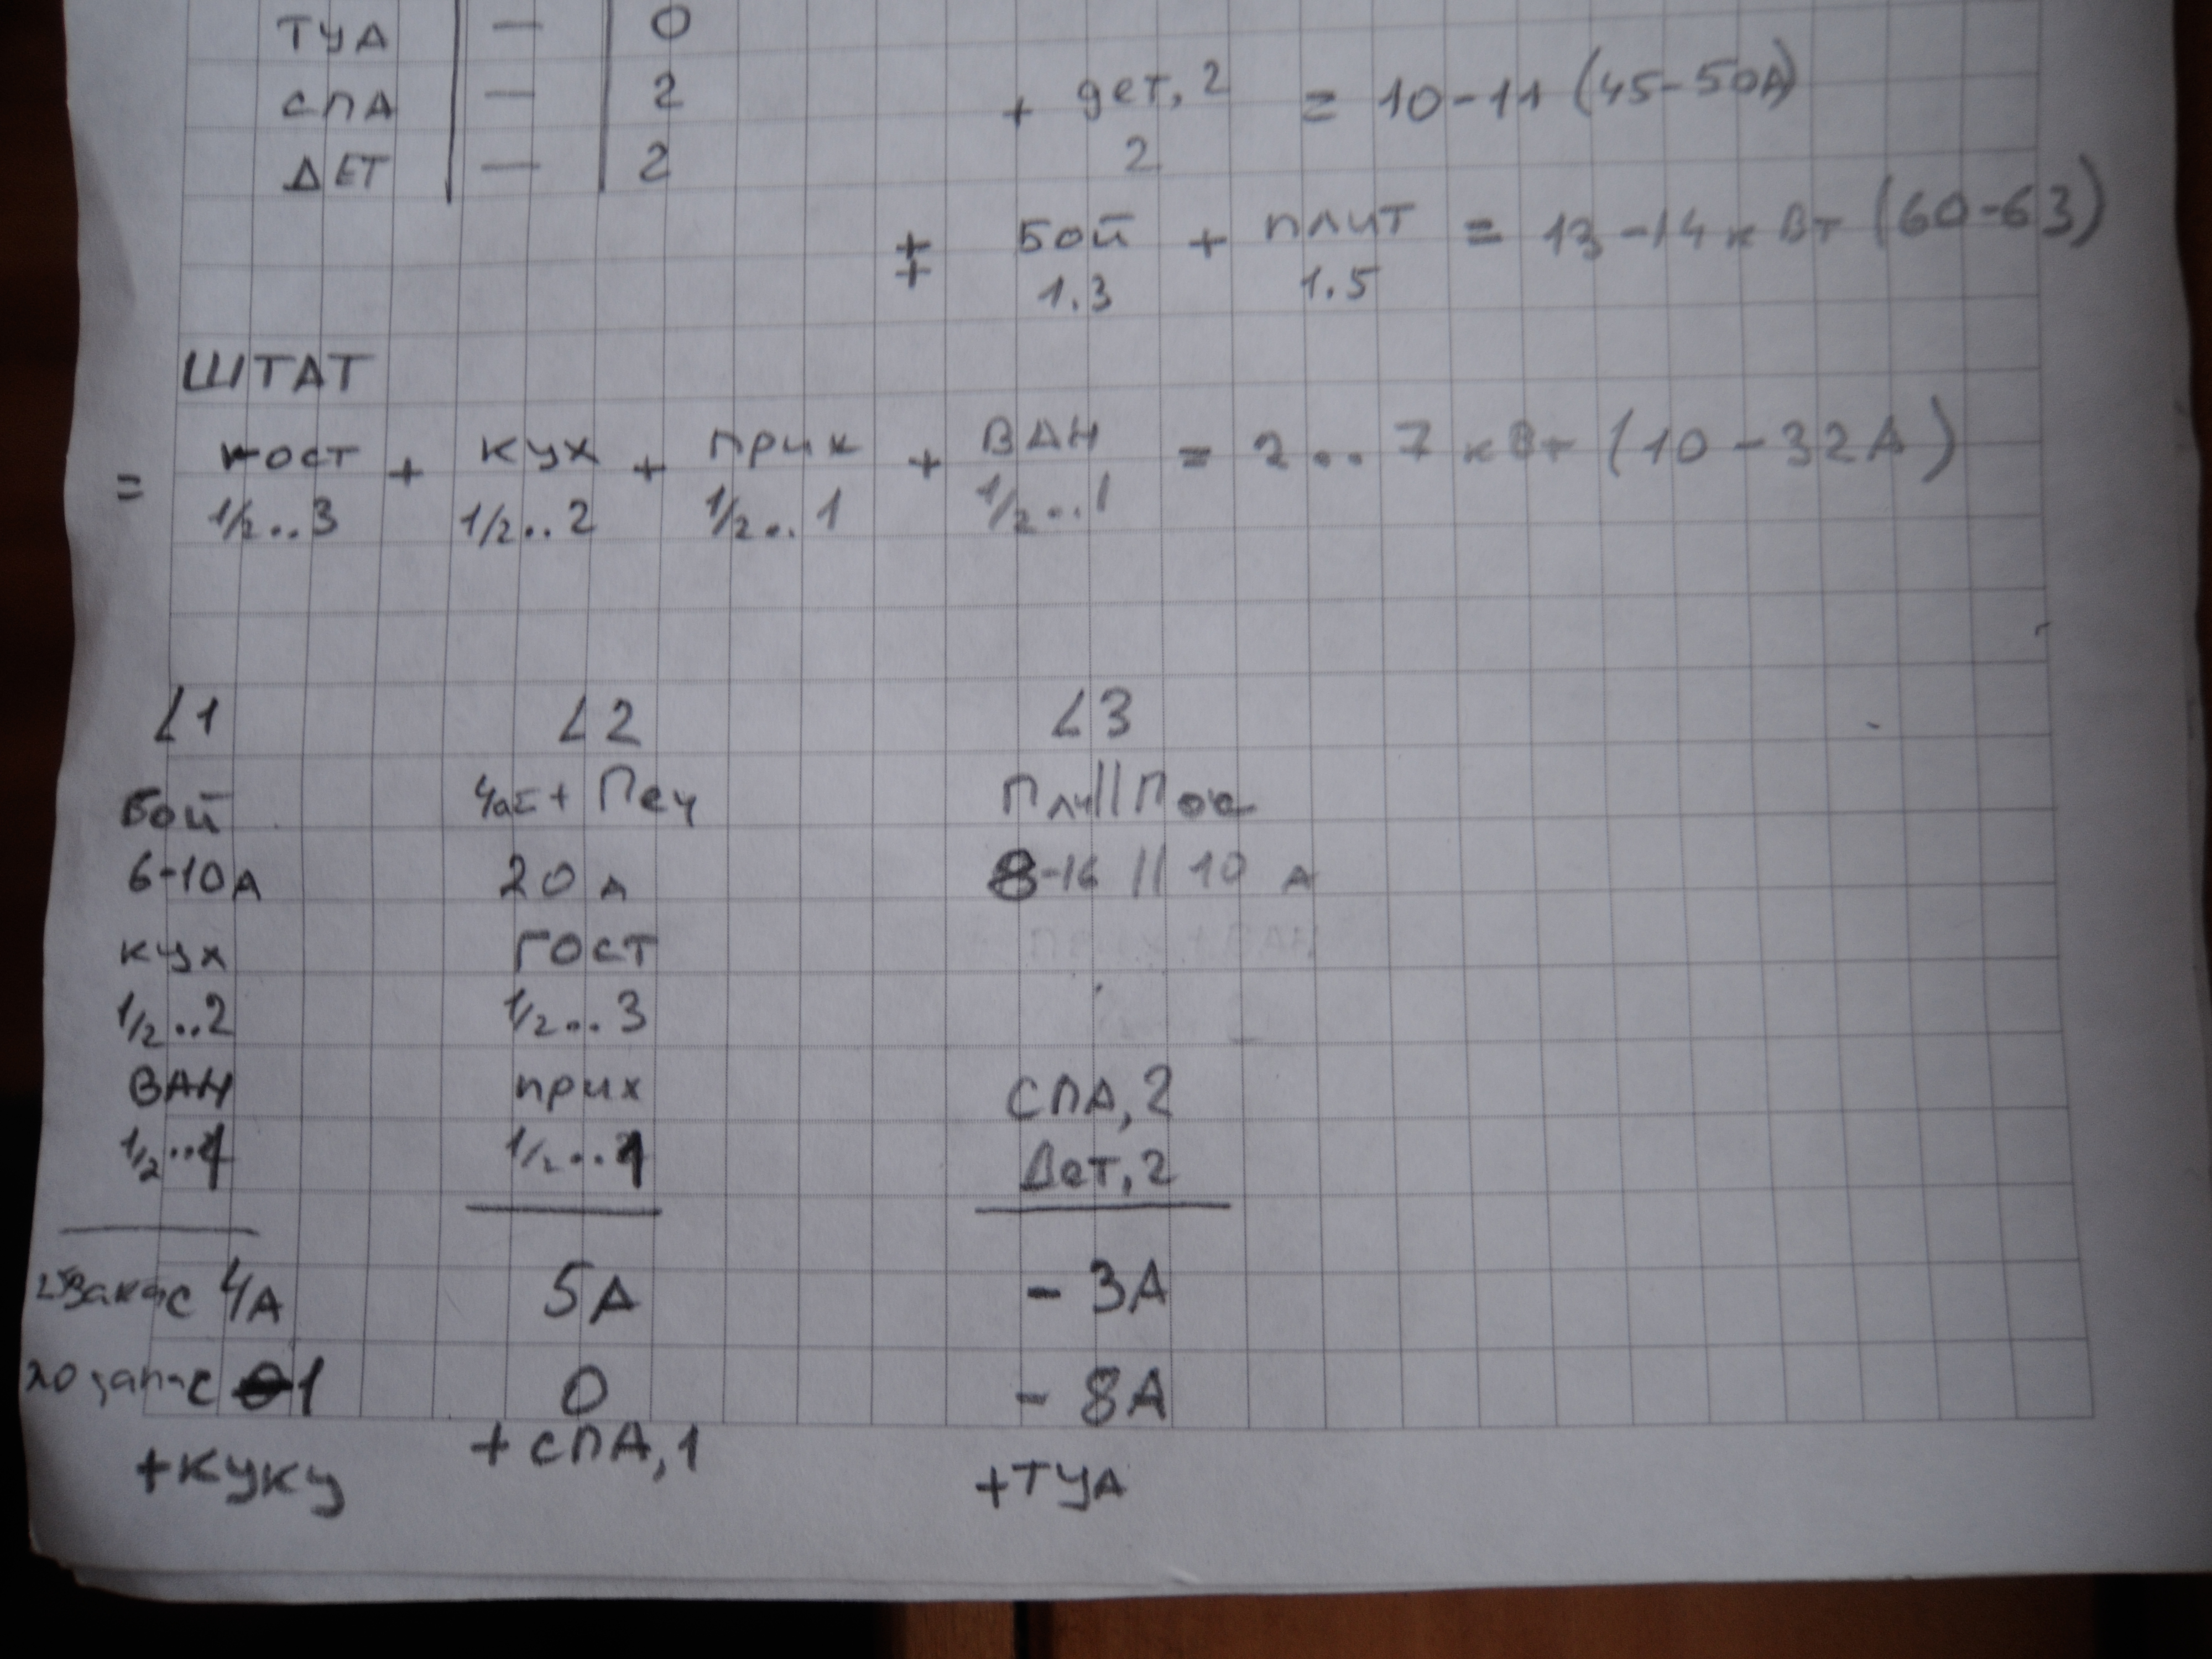 ТУА — 0
СПА — 2 + дет, 2 = 10-11 (45-50А)
ДЕТ — 2 2
+ + Бой + плит = 13-14 кВт (60-63)
1.3 1.5
ШТАТ
= гост + кух + прих + ВАН = 2..7 кВт (10-32А)
1/2..3 1/2..2 1/2..1 1/2..1
L1 L2 L3
Бой + Печ Пли||Пос
6-10А 20А 8-16 || 10 А
кух ГОСТ
1/2..2 1/2..3
ВАН прих СПА, 2
1/2..1 1/2..1 Дет, 2
4А 5А - 3А
20 запас 1 0 - 8А
+куку + СПА, 1 +ТУА